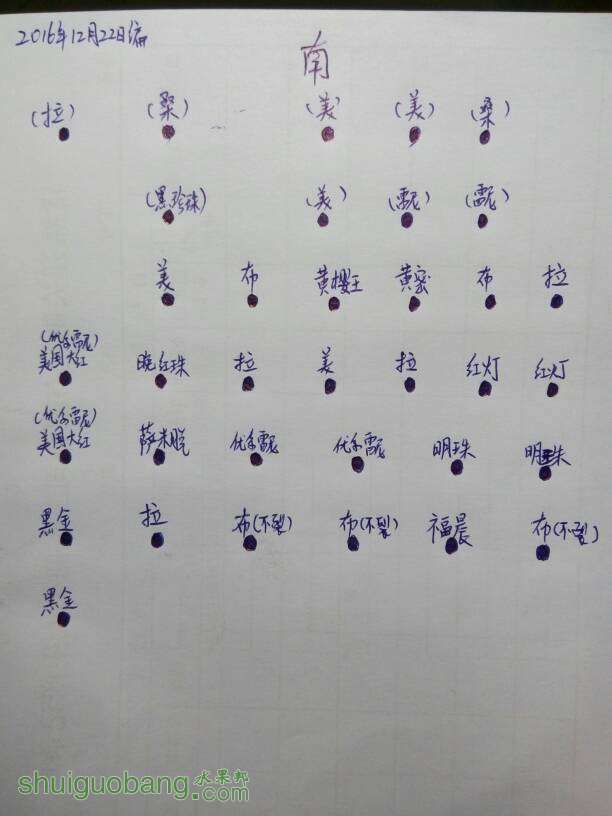 2016年12月22日编
南
(拉) (桑) (美) (美) (桑)
(黑珍珠) (美) (雷尼) (雷尼)
美 布 黄樱王 黄蜜 布 拉
(优系雷尼)
美国大红 晚红珠 拉 美 拉 红灯 红灯
(优系雷尼)
美国大红 萨米脱 优系雷尼 优系雷尼 明珠 明珠
黑金 拉 布(不裂) 布(不裂) 福晨 布(不裂)
黑金
shuiguobang.com 水果邦